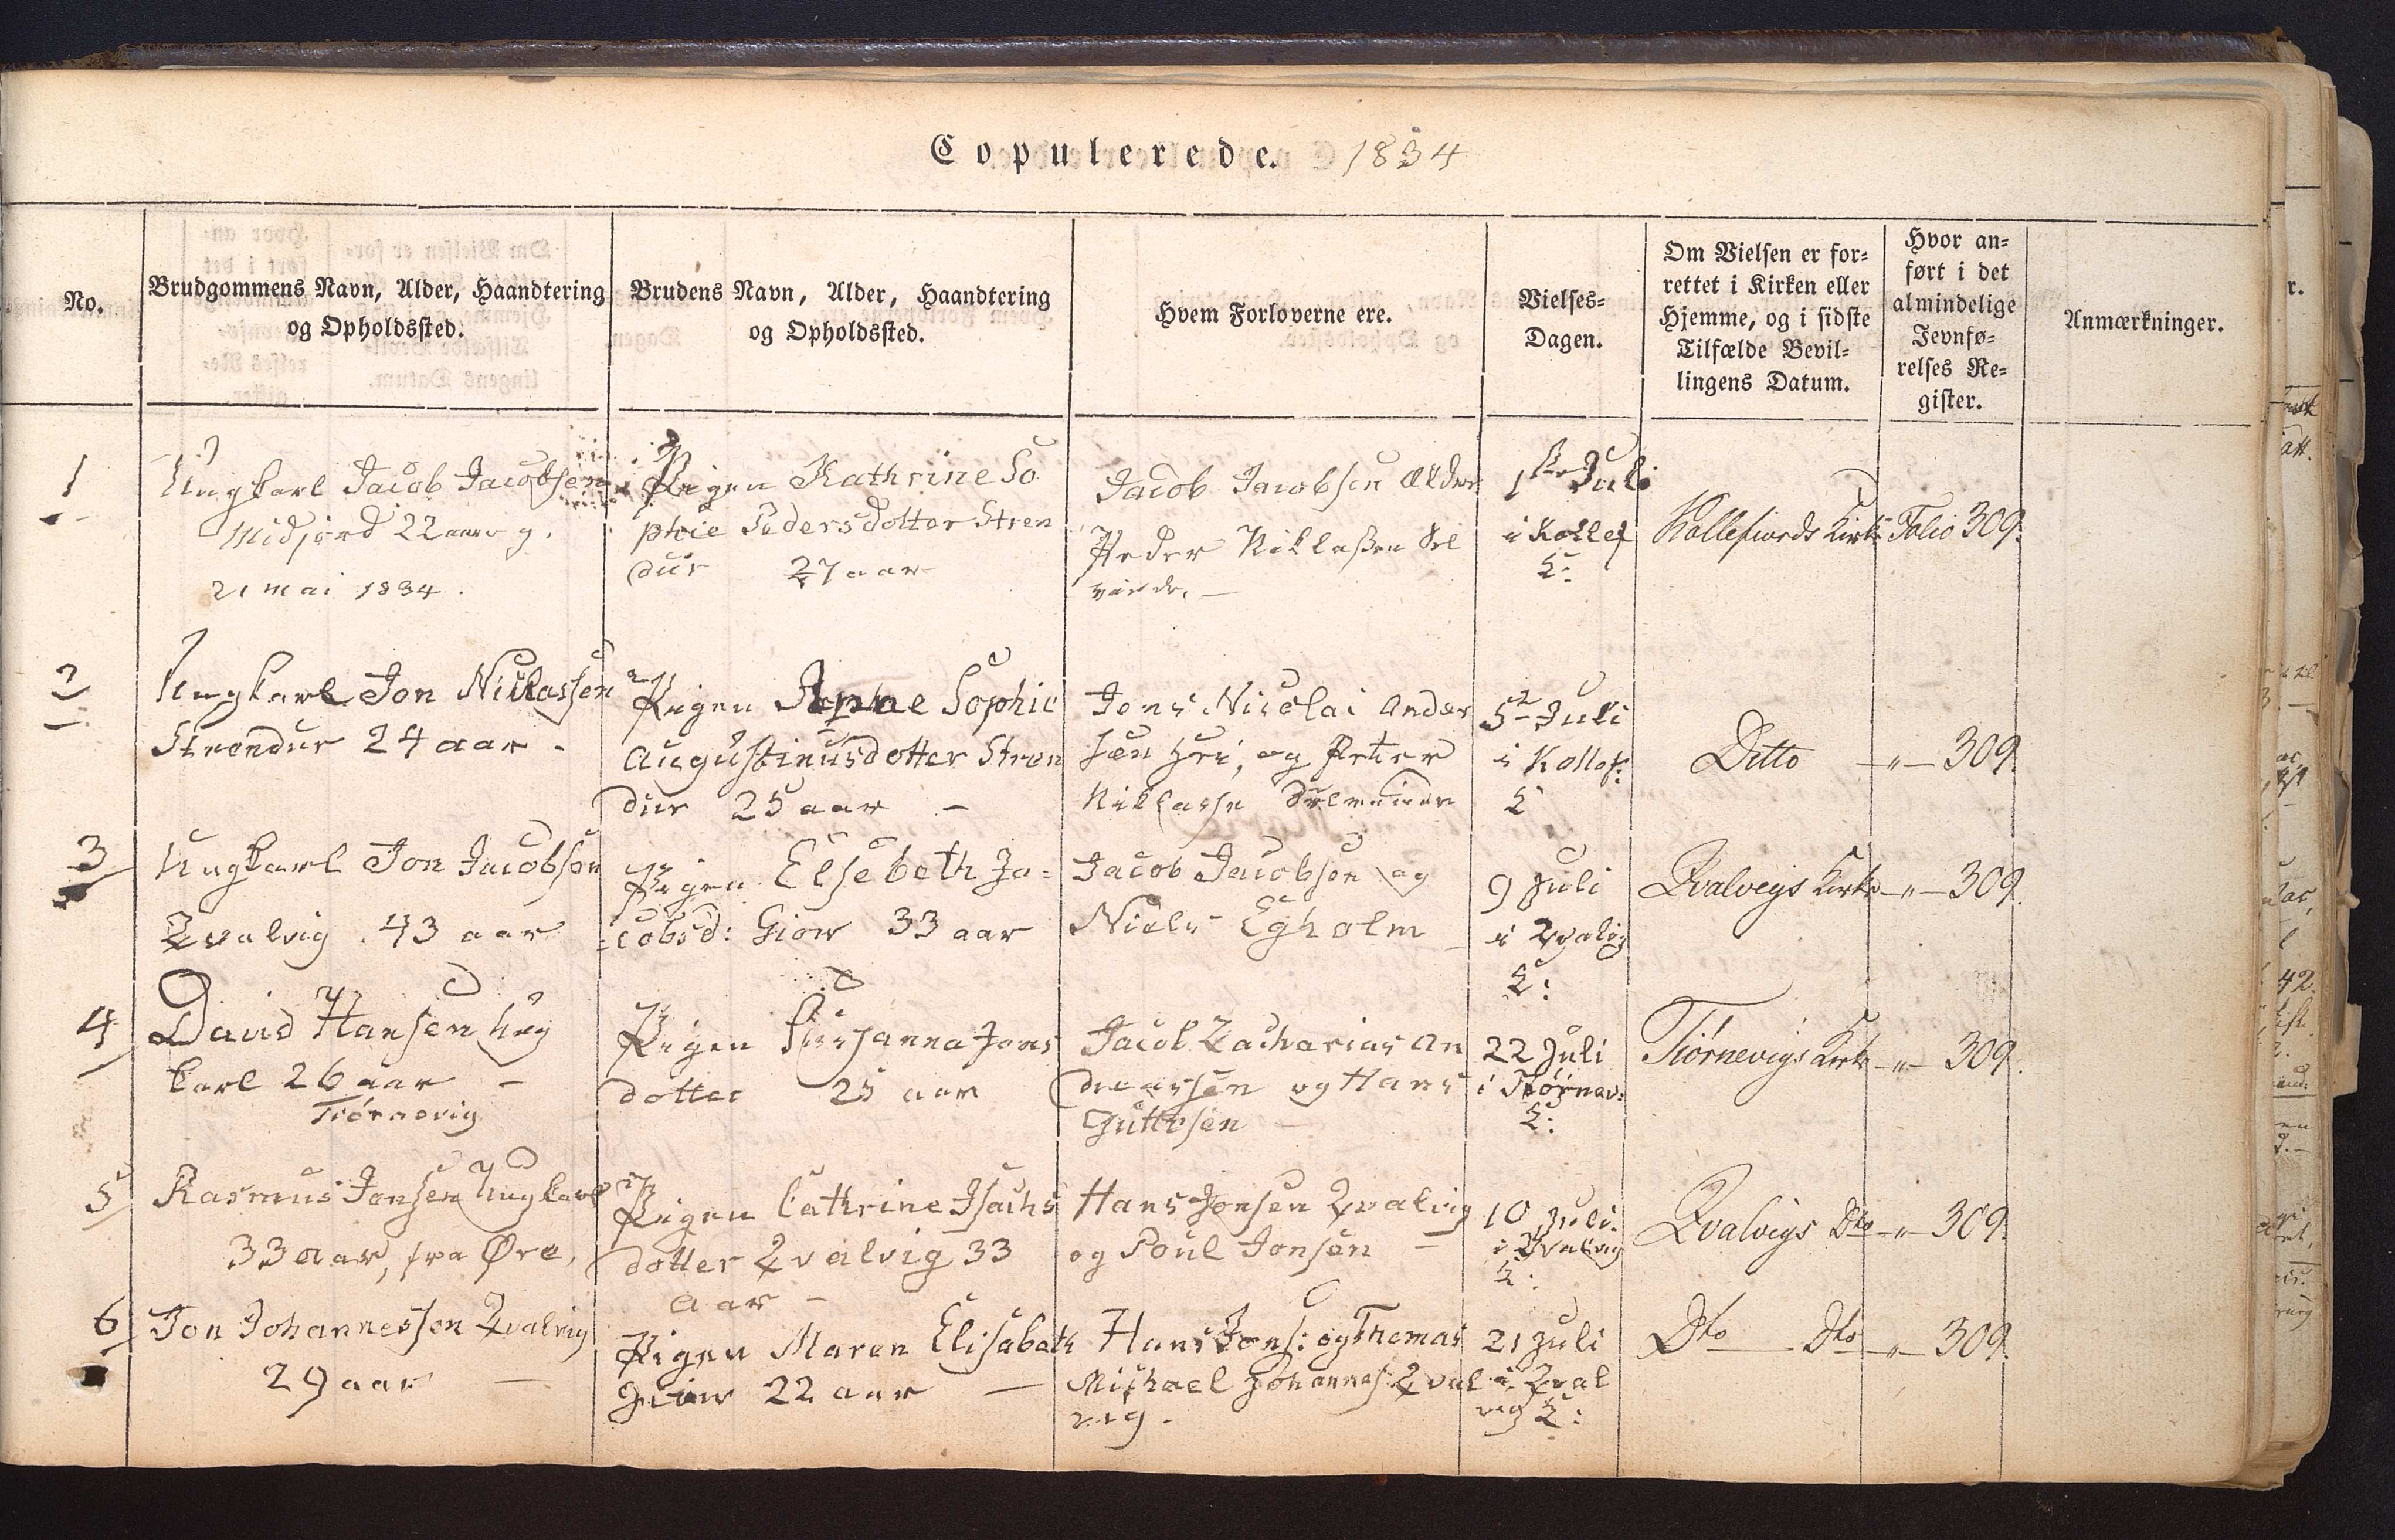 Copulerede. 1834
No.
Brudgommens Navn, Alder, Haandtering
og Opholdssted.
Brudens Navn, Alder, Haandtering
og Opholdssted.
Hvem Forloverne ere.
Vielses-
Dagen.
Om Vielsen er for-
rettet i Kirken eller
Hjemme, og i sidste
Tilfælde Bevil-
lingens Datum.
Hvor an-
ført i det
almindelige
Jevnfø-
relses Re-
gister.
Anmærkninger.
1
Ungkarl Jacob Jacobsen
Midjord 22 aar g.
21 mai 1834.
Pigen Kathrine So
phie Pedersdotter Stren
dur 27 aar
Jacob Jacobsen Ælder
Peder Niklaßen Sel
1ste Juli
i Kollef
K:
Kollefiords Kirke
Folio 309.
2
Ungkarl Jon Niclassen
Strendur 24 aar -
Pigen Sophie
Augustinusdotter Stren
dur 25 aar -
Jens Nicolai Ander
sen Hri, og Peter
Niklasse
5te Juli
i Kollef:
K
Ditto
-"- 309.
3
Ungkarl Jon Jacobsen
Qvalvig. 43 aar
Pigen Elsebeth Ja=
=cobsd: Giow 33 aar
Jacob Jacobsen og
Niels Egholm
9 Juli
i Qvalvig
K:
Qvalveigs Kirke
-"- 309.
4
David Hansen Ung
karl 26 aar -
Tiørnevig
Pigen Susanna Joens
dotter 25 aar
Jacob Zacharias An
dreassen og Hans
Guttesen
22 Juli
i Tiørnev:
K:
Tiørnevigs Kirke
-"- 309.
5
Rasmus Jonsen Ungkarl
33 aar, fra Øre,
Pigen Cathrine Isachs
dotter Qvalvig 33
aar -
Hans Jonsen Qvalvig
og Poul Jonsen -
10 Juli.
i Qvalvig
K:
Qvalvigs Dto
-"- 309.
6
Jon Johannessen Qvalvig
29 aar -
Pigen Maren Elisabeth
Giow 22 aar -
Hans Jons: og Thomas
Michael Johannes: Qval
vig.
21 Juli
i Qval
vig K:
Dto Dto
-"- 309.